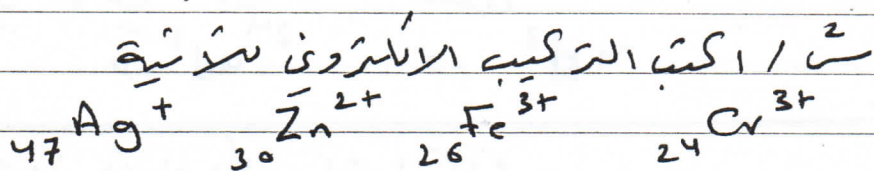 س2 / اكتب التركيب الالكتروني للآتية
47Ag+ 30Zn2+ 26Fe3+ 24Cr3+